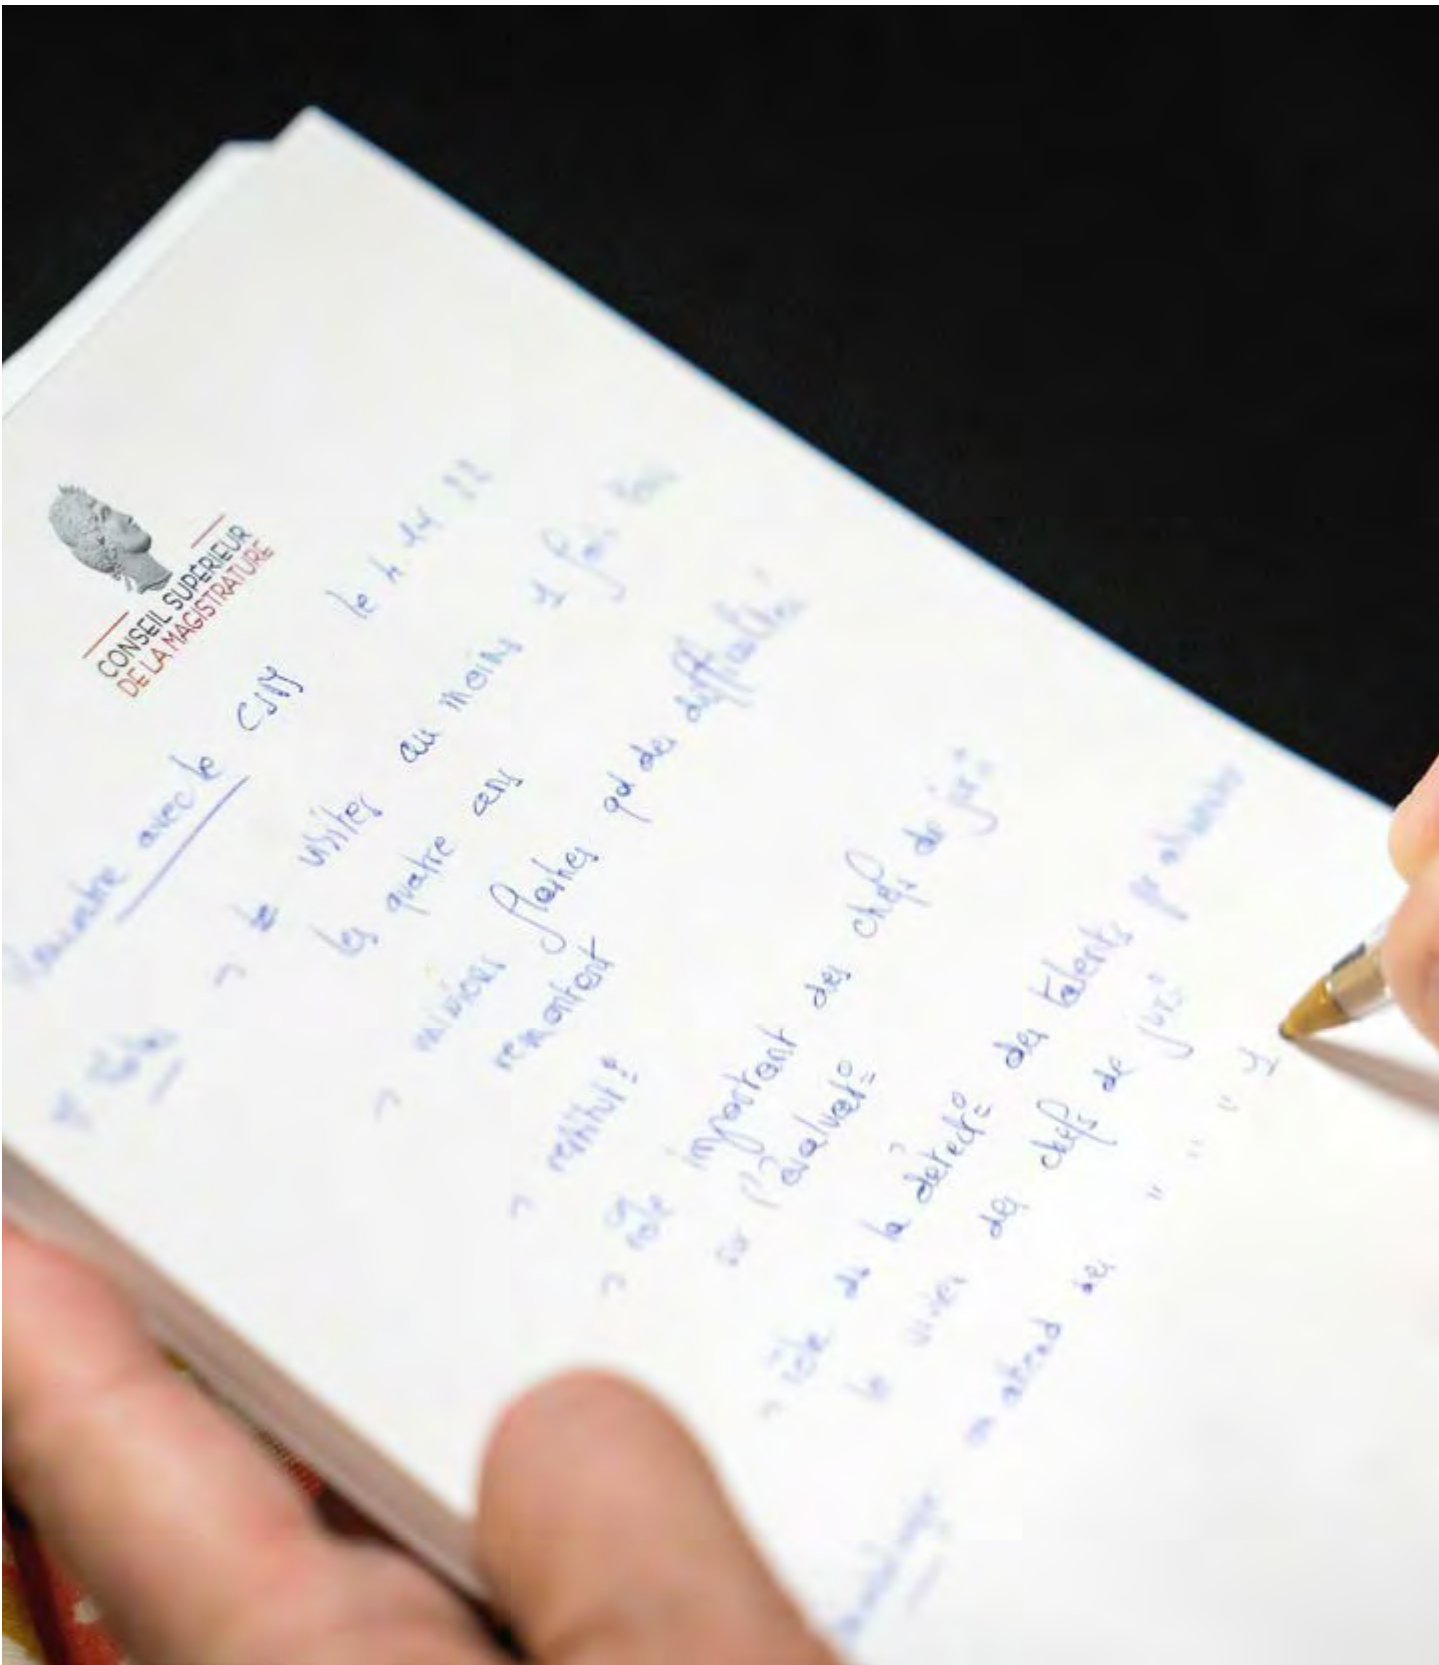 CONSEIL SUPÉRIEUR
DE LA MAGISTRATURE
avec le CSM le
visites au moins 1 fois
les quatre ans
missions flashes qd des difficultés
remontent
restitut°
rôle important des chefs de jur°
sur l'évaluat°
rôle ds la détect° des talents pr
le vivier des chefs de jur°
on attend des " " " y